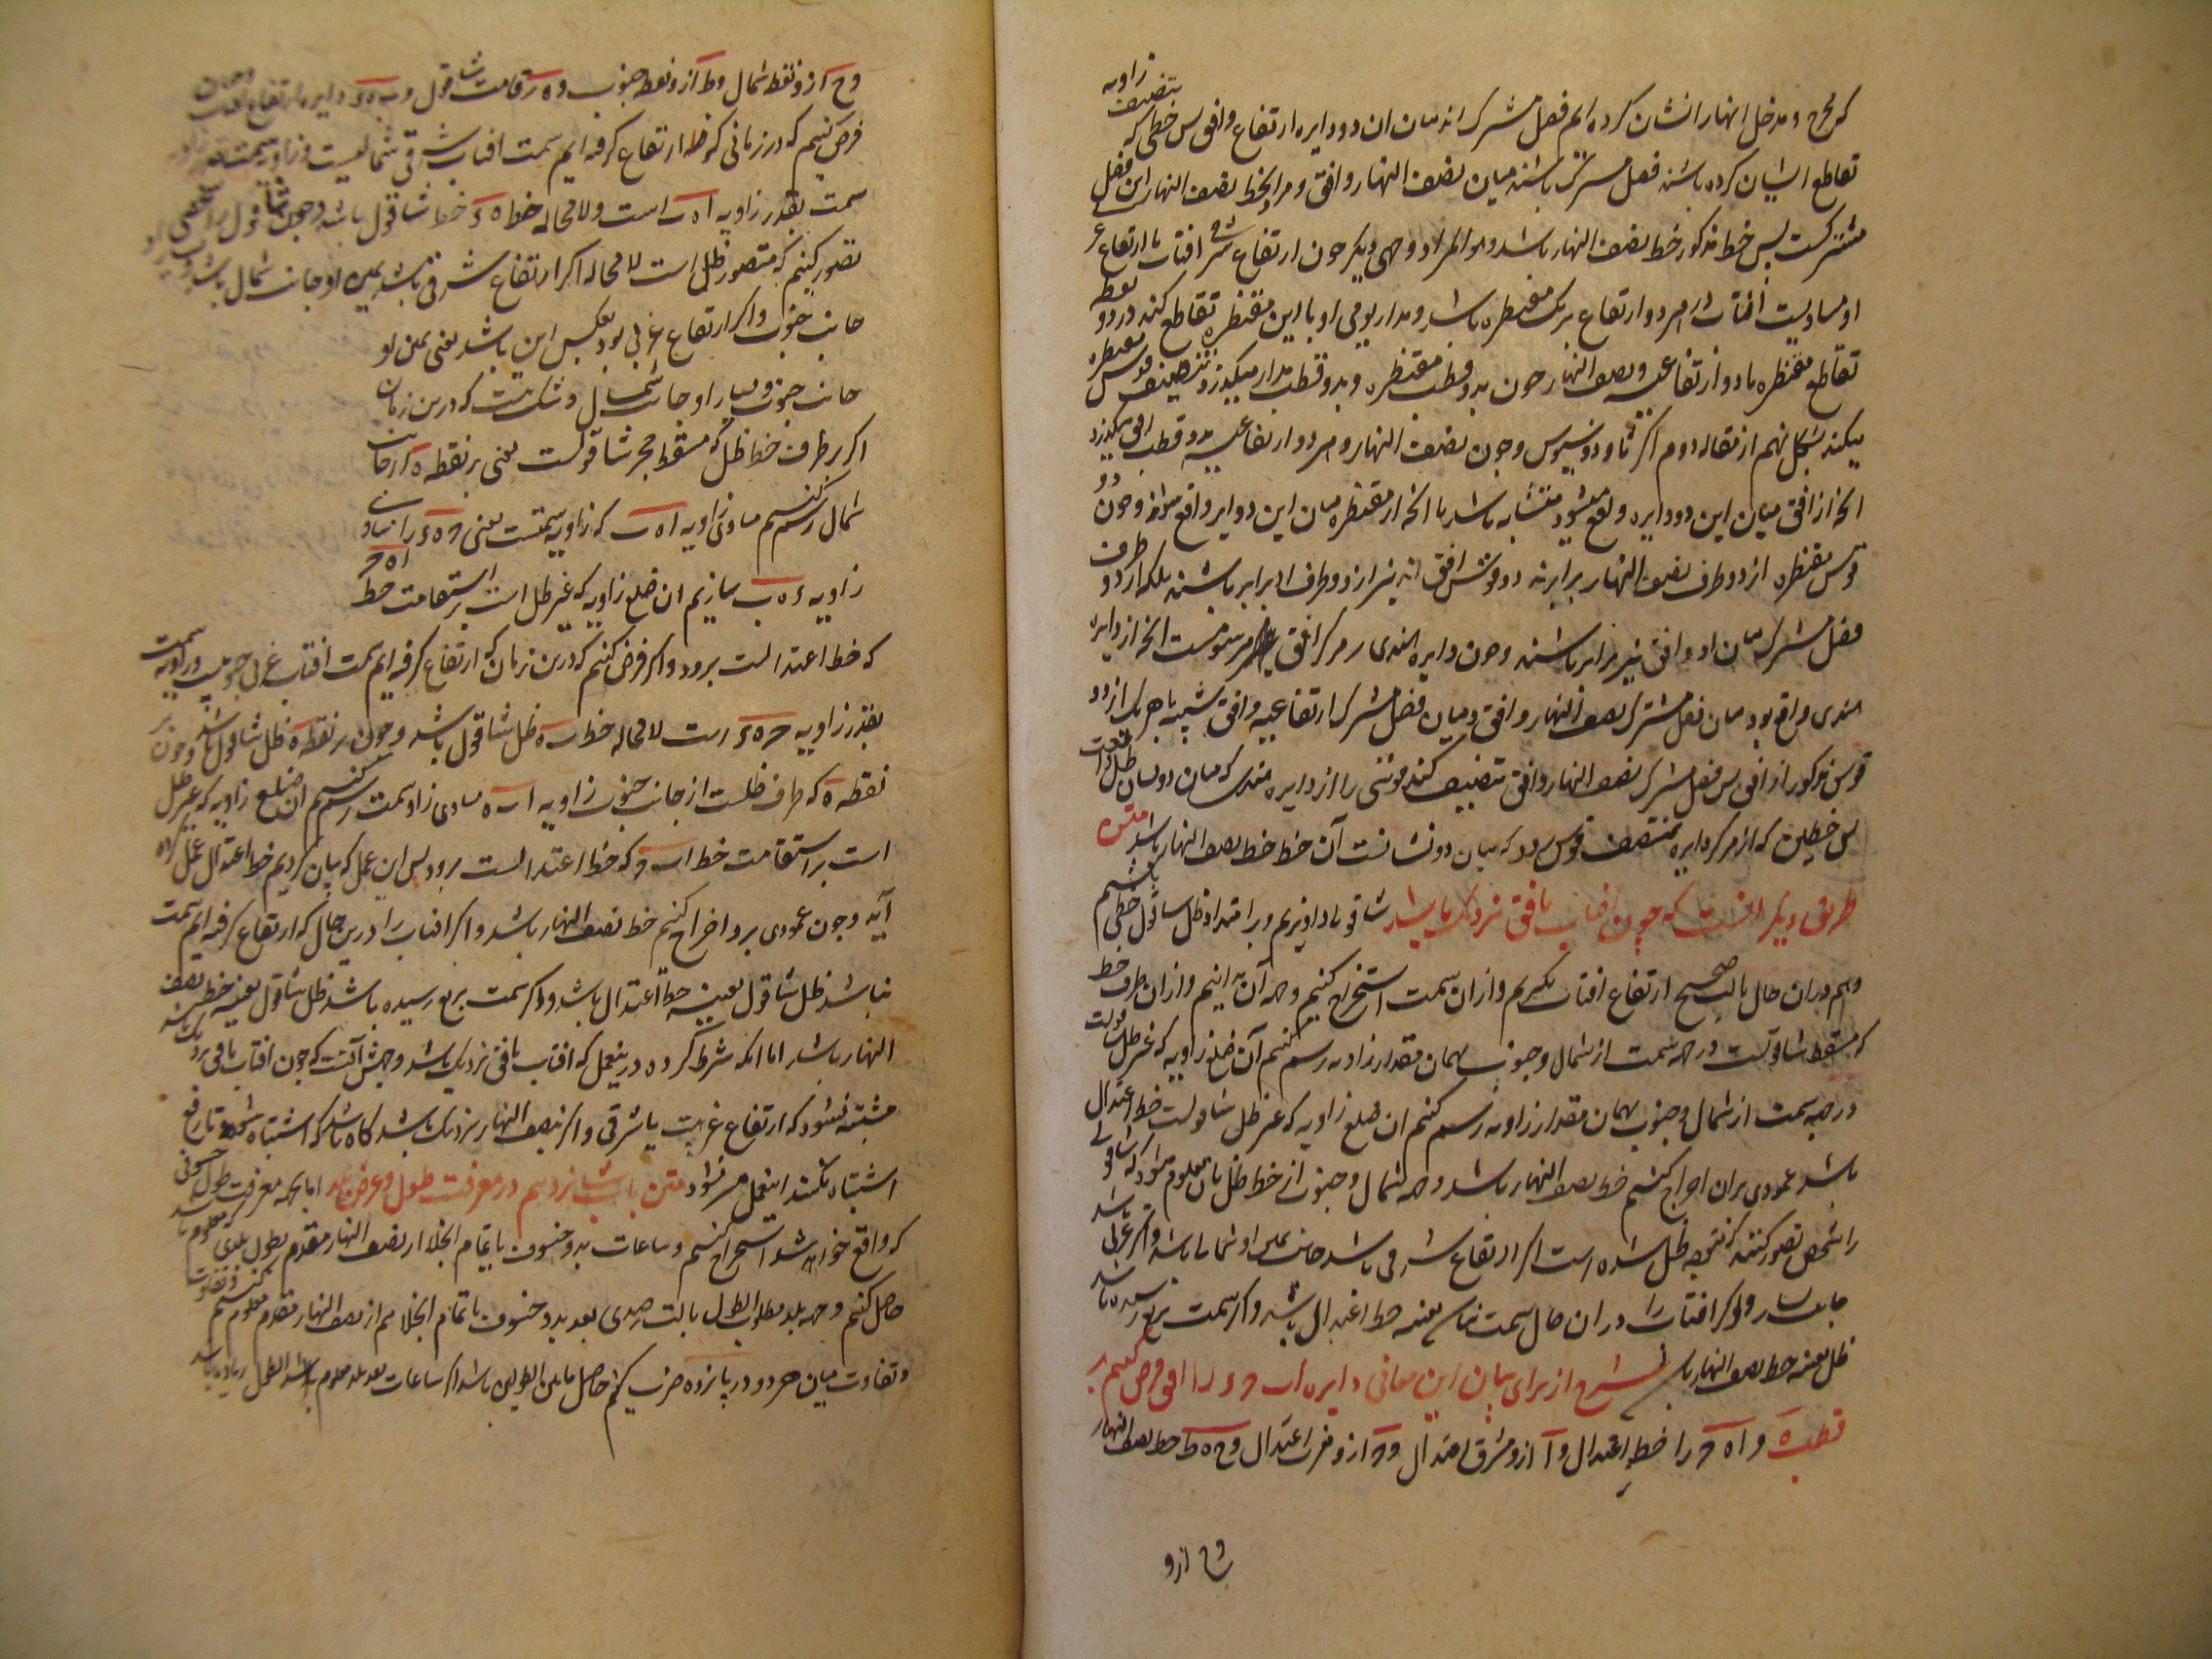 که مخرج و مدخل انها را نشان کرده ایم فصل مشترک اند میان ان دو دایره ارتفاع و افق پس خطی که بتنصیف زاویه
تقاطع ایشان کرده باشند فصل مشترک باشد میان نصف النهار و افق و مراد بخط نصف النهار این فصل
مشترکست پس خط مذکور خط نصف النهار باشد و هو المراد و وجهی دیگر چون ارتفاع شرقی افتاب با ارتفاع
او مساویست افتاب در هر دو ارتفاع بر یک مقنطره باشد و مدار یومی او با این مقنطره تقاطع کند در دو نقطه
تقاطع مقنطره با دو ارتفاعیه و نصف النهار چون بدو قطب مقنطره و بدو قطب مدار میگذرد تنصیف قوس مقنطره
میکند بشکل نهم از مقاله دوم اکر ثاودوسیوس و چون نصف النهار و هر دو ارتفاعیه بدو قطب افق میگذرد
انچه از افق میان این دو دایره واقع میشود متشابه باشد با انچه از مقنطره میان این دوایر واقع شود و چون دو
قوس مقنطره از دو طرف نصف النهار برابرند دو قوس افق نیز از دو طرف او برابر باشند بلکه از دو طرف
فصل مشترک میان او و افق نیز برابر باشند و چون دایره هندی بر مرکز افق مرسومست انچه از دایره
هندی واقع بود میان فصل مشترک نصف النهار و افق و میان فصل مشترک ارتفاعیه و افق شبیه باشد
قوس مذکور از افق پس فصل مشترک نصف النهار و افق تنصیف کند قوسی را از دایره هندی که میان دو نشان ظل واقعست
پس خطی که از مرکز دایره بمنتصف قوس رود که میان دو نشانست آن خط خط نصف النهار باشد متن
طریق دیگر انست که چون افتاب بافق نزدیک باشد شاقولی در اویزیم و بر امتداد ظل شاقول خطی کشیم
و هم دران حال بالت صحیح ارتفاع افتاب بگیریم و ازان سمت استخراج کنیم و جهه آن بدانیم و ازان طرف خط
که مسقط شاقولست در جهه سمت از شمال و جنوب بهمان مقدار زاویه رسم کنیم آن ضلع زاویه که غیر ظل
در جهه سمت از شمال و جنوب بهمان مقدار زاویه رسم کنیم ان ضلع زاویه که غیر ظل شاقولست خط اعتدال
باشد عمودی بران اخراج کنیم خط نصف النهار باشد و جهه شمال و جنوب از خط ظل بان معلوم شود که شاقول
را شخصی تصور کنند که متوجه ظل شده است اگر ارتفاع شرقی باشد جانب یمین او شمال باشد و اگر غربی باشد
جانب یسار و اگر افتاب را دران حال سمت نباشد بعینه خط اعتدال باشد و اگر سمت بربع رسیده باشد
ظل بعینه خط نصف النهار باشد شرح از برای بیان این معانی دایره ا ب ح د را افق فرض کنیم بر
قطب ه و ا ه ح را خط اعتدال و ا ازو مشرق اعتدال و ح ازو مغرب اعتدال و ح ه ط خط نصف النهار
و ح ازو
و ح ازو نقطه شمال و ط ازو نقطه جنوب و ه ر قامت شاقول و ب ه د دایره ارتفاع افتاب
فرض کنیم که در زمانی که ما ارتفاع گرفته ایم سمت افتاب شرقی شمالیست و زاویه سمت
سمت بقدر زاویه ا ه ب است و لا محاله خط ه د خط شاقول باشد و چون شاقول را شخصی
تصور کنیم که متصور ظل است لا محاله اگر ارتفاع شرقی باشد یمین او جانب شمال باشد
جانب جنوب و اگر ارتفاع غربی بود بعکس این باشد یعنی یمین او
جانب جنوب و یسار او جانب شمال و شک نیست که درین زمان
اگر بر طرف خط ظل که مسقط حجر شاقولست یعنی بر نقطه ه از جانب
شمال رسم کنیم مساوی زاویه ا ه ب که زاویه سمتست یعنی ح ه د را مساوی
زاویه د ه ب سازیم ان ضلع زاویه که غیر ظل است بر استقامت خط ا ه ح
که خط اعتدالست برود و اگر فرض کنیم که درین زمان که ارتفاع گرفته ایم سمت افتاب غربی جنوبیست و زاویه سمت
بقدر زاویه ح ه د است لا محاله خط ب ه ظل شاقول باشد و چون بر نقطه ه ظل شاقول باشد و چون بر
نقطه ه که طرف ظلست از جانب جنوب زاویه ا ب ه مساوی زاویه سمت رسم کنیم ان ضلع زاویه که غیر ظل
است بر استقامت خط ا ب ح که خط اعتدالست برود پس این عمل که بیان کردیم خط اعتدال عمل کرده
آید و چون عمودی برو اخراج کنیم خط نصف النهار باشد و اگر افتاب را درین حال که ارتفاع گرفته ایم سمت
نباشد ظل شاقول بعینه خط اعتدال باشد و اگر سمت بربع رسیده باشد ظل شاقول بعینه خط نصف
النهار باشد اما انکه شرط کرده درینعمل که افتاب بافق نزدیک باشد وجهش آنست که چون افتاب بافق نزدیک باشد
مشتبه نشود که ارتفاع غربیست یا شرقی و اگر بنصف النهار نزدیک باشد گاه باشد که اشتباه شود تا رفع
اشتباه نکنند اینعمل میسر نشود متن باب شانزدهم در معرفت طول و عرض بلد اما بجهه معرفت طول خسوفی
که واقع خواهد شد استخراج کنیم و ساعات بدو خسوف یا تمام انجلا از نصف النهار مقدم بطول بلدی معلوم
حاصل کنیم و جهه بلد مطلوب الطول بالت رصدی بعد بدو خسوف یا تمام انجلا هم از نصف النهار مقدم معلوم کنیم و تفاوت
و تفاوت میان هر دو در پانزده ضرب کنیم حاصل مابین الطولین باشد اگر ساعات بعد بلد معلوم الطول زیاده باشد